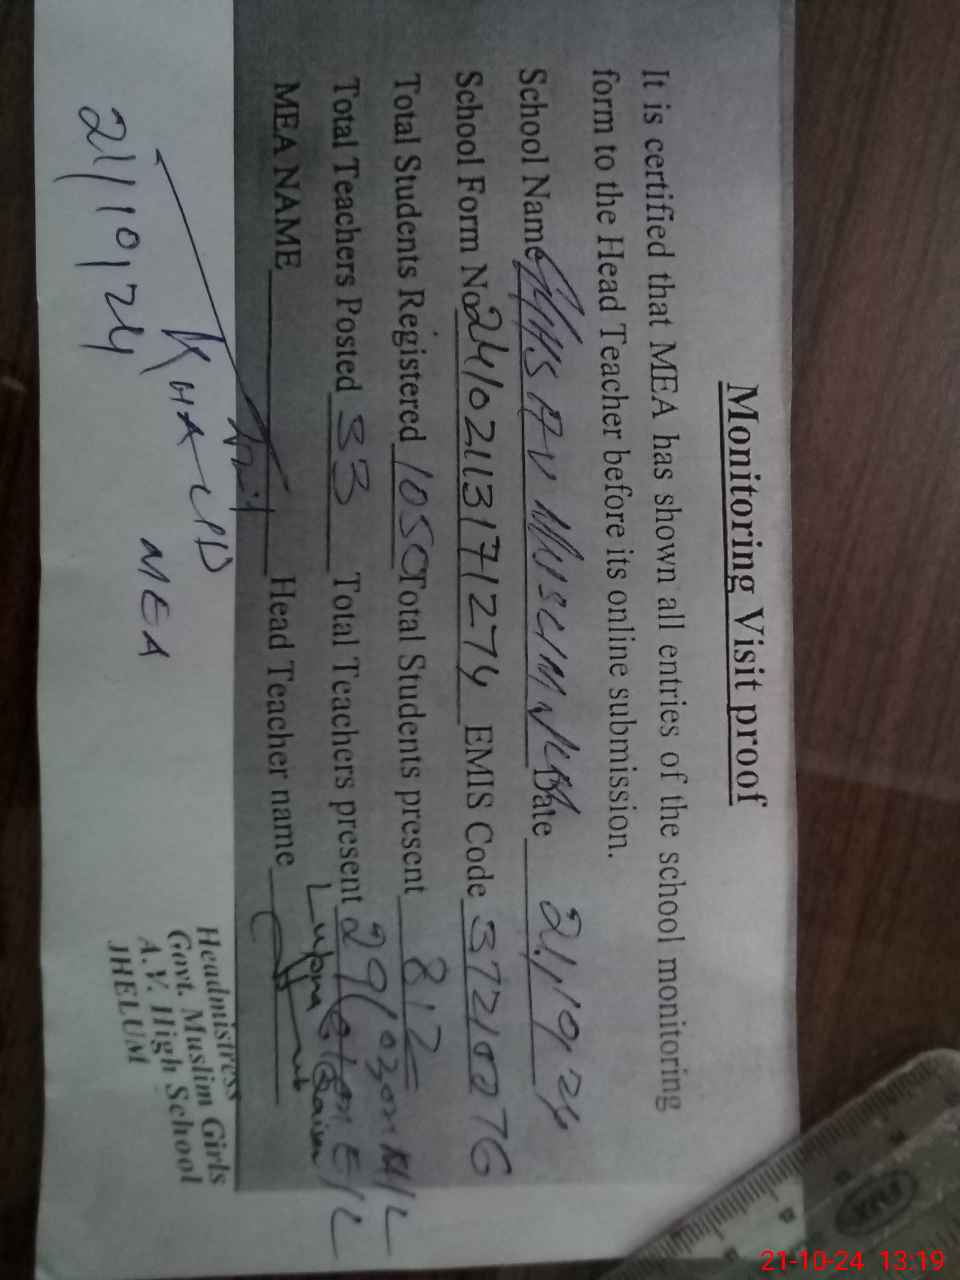 Monitoring Visit proof
It is certified that MEA has shown all entries of the school monitoring
form to the Head Teacher before its online submission.
School Name GHS AV Date 21/10/24
School Form No 24102113171274 EMIS Code 37210276
Total Students Registered 1050 Total Students present 812
Total Teachers Posted 33 Total Teachers present 29
MEA NAME Head Teacher name
Lubna
KHALID
MEA
21/10/24
Headmistress
Govt. Muslim Girls
A.V. High School
JHELUM
21-10-24 13:19